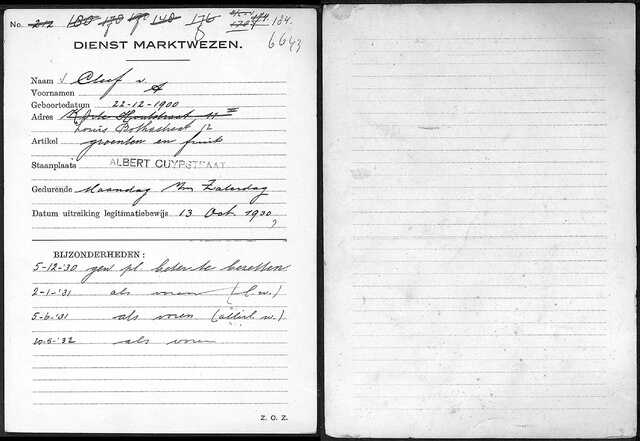 No. 212 180 178 192 140 176 178 184 184.
6643
DIENST MARKTWEZEN.
Naam v. Cleef
Voornamen A
Geboortedatum 22-12-1900
Adres II
Louis Bothastraat 12
Artikel groenten en fruit
Staanplaats ALBERT CUYPSTRAAT
Gedurende Maandag t/m Zaterdag
Datum uitreiking legitimatiebewijs 13 Oct. 1930
BIJZONDERHEDEN:
5-12-'30 gen pl. beter te bezetten
2-1-'31 als voren
5-6-'31 als voren
20-5-'32 als voren
Z. O. Z.